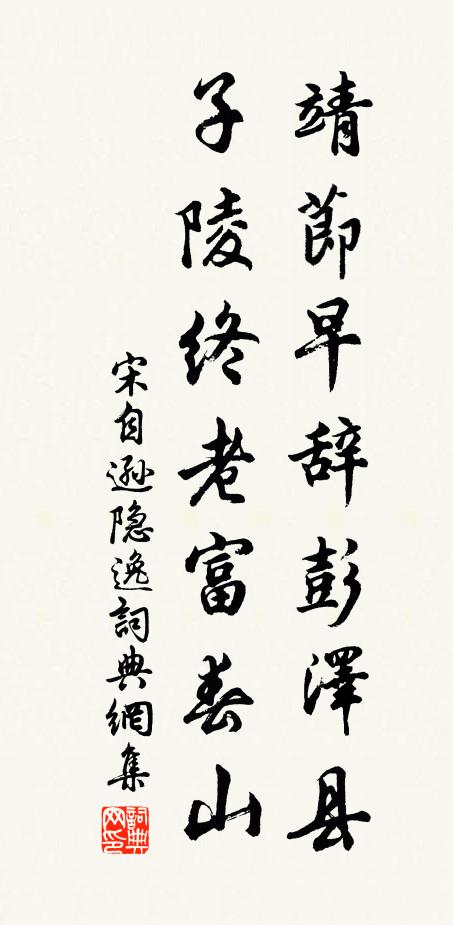 靖節早辞彭澤县
子陵终老富春山
宋自遜隐逸詞典網集
詞典网印